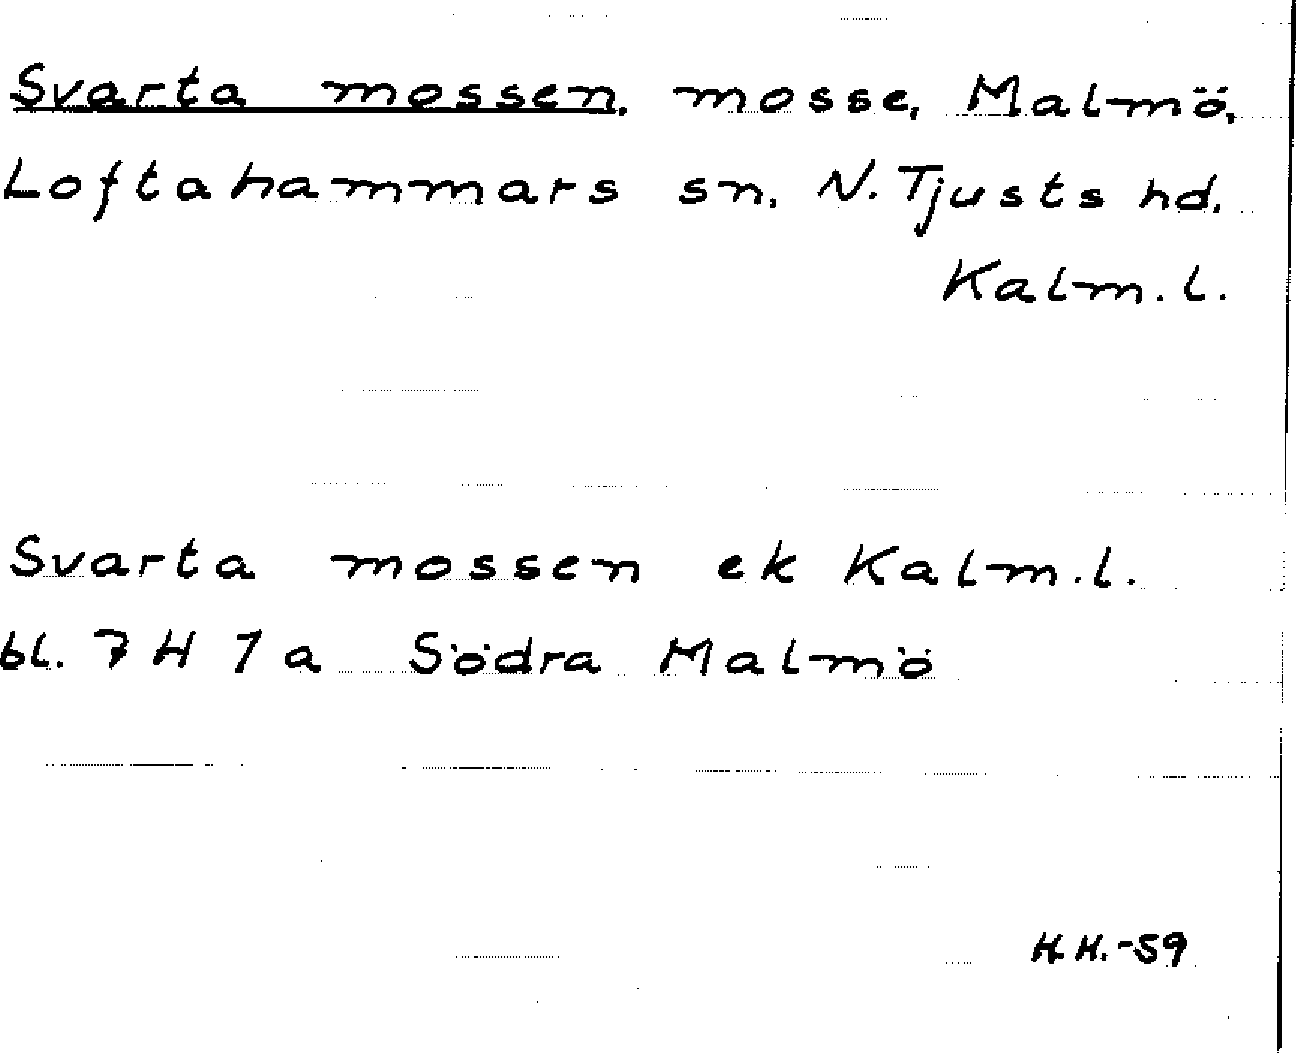 Svarta mossen, mosse, Malmö,
Loftahammars sn, N. Tjusts hd,
Kalm. l.
Svarta mossen ek Kalm. l.
bl. 7 H 7 a Södra Malmö
H. H. -59